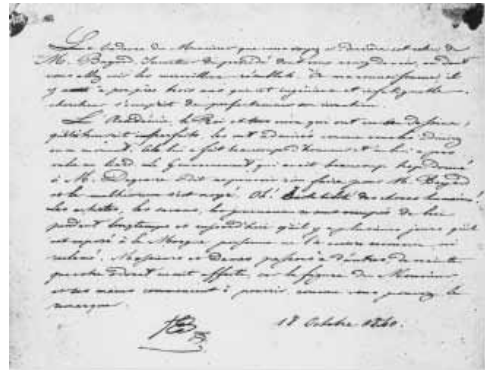 Le cadavre du Monsieur que vous voyez ci derrière est celui de
M. Bayard, Inventeur du procédé dont vous venez de voir, ou dont
vous allez voir les merveilleux résultats. À ma connaissance, il
y a à peu près trois ans que cet ingénieux et infatigable
chercheur s'occupait de perfectionner son invention.
L'Académie, le Roi et tous ceux qui ont vu ses dessins,
que lui trouvait imparfaits, les ont admirés comme vous les admirez
en ce moment. Cela lui a fait beaucoup d'honneur et ne lui a pas
valu un liard. Le Gouvernement, qui avait beaucoup trop donné
à M. Daguerre a dit ne pouvoir rien faire pour M. Bayard
et le malheureux s'est noyé. Oh! Instabilité des choses humaines!
Les artistes, les savans, les journaux se sont occupés de lui
pendant longtemps et aujourd'hui qu'il y a plusieurs jours qu'il
est exposé à la Morgue personne ne l'a encore reconnu, ni
réclamé. Messieurs et Dames, passons à d'autres, de crainte
que votre odorat ne soit affecté, car la figure du Monsieur
et ses mains commencent à pourrir, comme vous pouvez le
remarquer.
18 Octobre 1840.